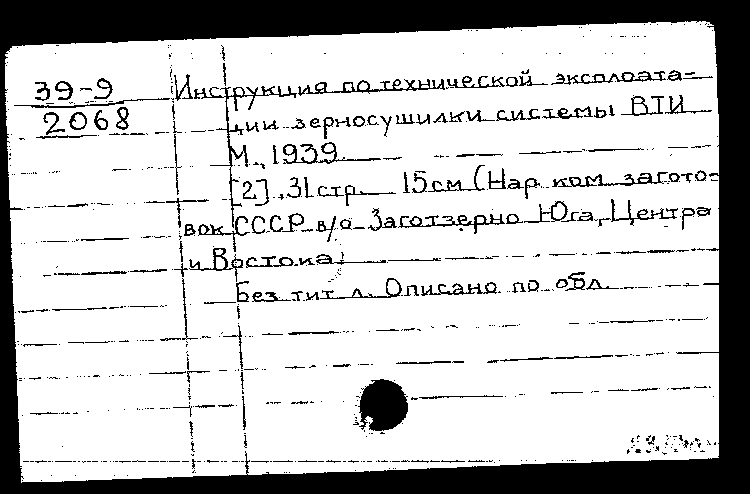 39-9
2068
Инструкция по технической эксплоата-
ции зерносушилки системы ВТИ
М., 1939.
[2], 31 стр. 15см (Нар. ком. загото-
вок СССР в/о Заготзерно Юга, Центра
и Востока)
Без тит л. Описано по обл.